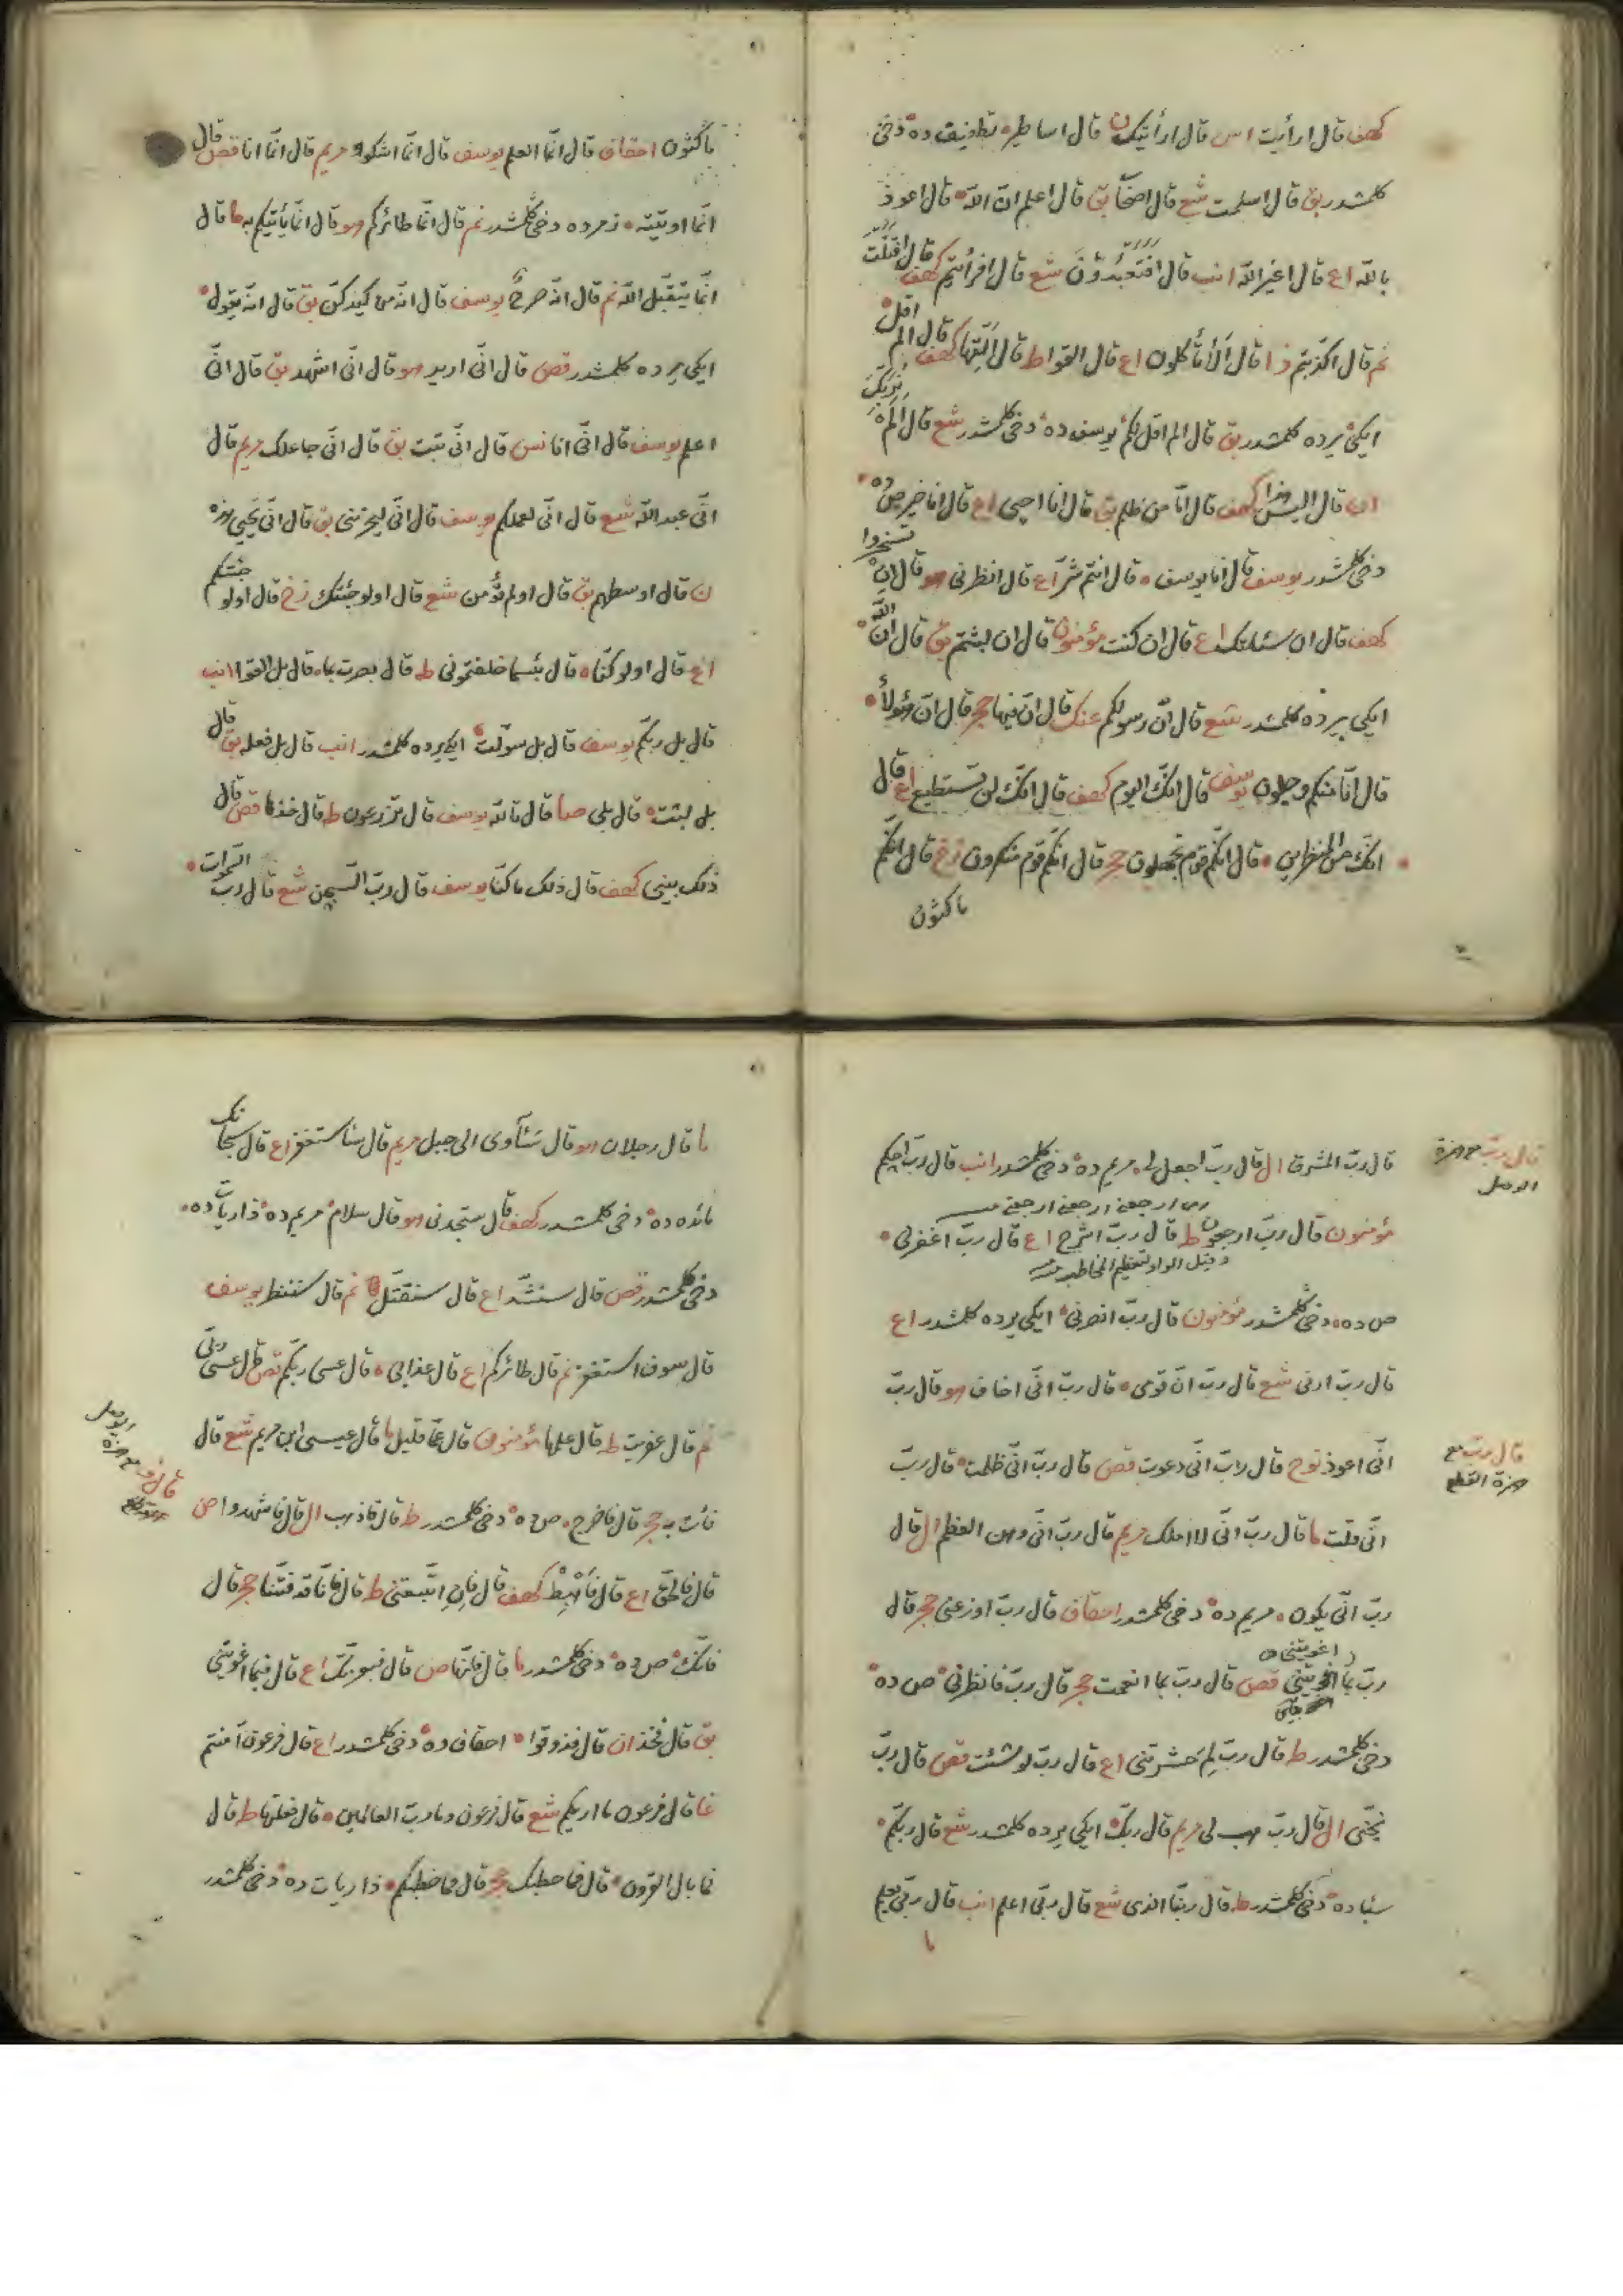 كهف قال ارأيت اس قال ارأيتك ن قال اساطير ه تطفيف ده دخى
كلمشدر بق قال اسلمت شع قال اصحاب بق قال اعلم ان الله ه قال اعوذ
بالله اع قال اغير الله انب قال افتعبدون شع قال افرأيتم كهف قال اقتلت
نم قال اكذبتم ذا قال ألا تأكلون اع قال القوا ط قال ألقها كهف قال الم اقل
ايكى يرده كلمشدر بق قال الم اقل لكم يوسف ده دخى كلمشدر شع قال ألم نربك
ان قال اليس هذا كهف قال امّا من ظلم بق قال انا احيى اع قال انا خير ص ده
دخى كلمشدر يوسف قال انا يوسف ه قال انتم شرّ اع قال انظرنى هو قال ان تسخروا
كهف قال ان سئلتك اع قال ان كنت مؤمنون قال ان لبثتم بق قال انّ الله
ايكى يرده كلمشدر شع قال انّ رسولكم عنك قال انّ فيها حجر قال انّ هؤلاء
قال انّا منكم وجلون يوسف قال انّك اليوم كهف قال انّك لن تستطيع اع قال
انّك من المنظرين ه قال انّكم قوم تجهلون حجر قال انّكم قوم منكرون زخ قال انّكم
ماكثون
ماكثون احقاف قال انّما العلم يوسف قال انّما اشكوا مريم قال انّما انا قص قال
انّما اوتيته ه زمرده دخى كلمشدر نم قال انّما طائركم هو قال انّما يأتيكم به ما قال
انّما يتقبل الله نم قال انّه صرح يوسف قال انّه من كيدكنّ بق قال انّه يقول
ايكى يرده كلمشدر قص قال انّى اريد هو قال انّى اشهد بق قال انّى
اعلم يوسف قال انّى انا نس قال انّى تبت بق قال انّى جاعلك مريم قال
انّى عبد الله شع قال انّى لعملكم يوسف قال انّى ليحزننى بق قال انّى يحيى هذه
ن قال اوسطهم بق قال اولم تؤمن شع قال اولو جئتك زخ قال اولو جئتكم
اع قال اولو كنّا ه قال بئسما خلفتمونى ط قال بصرت بما ه قال بل القوا انب
قال بل ربكم يوسف قال بل سوّلت ايكى يرده كلمشدر انب قال بل فعله بق قال
بل لبثت ه قال بلى صا قال تالله يوسف قال تزرعون ط قال خذها قص قال
ذلك بينى كهف قال ذلك ما كنّا يوسف قال ربّ السجن شع قال ربّ السموات
قال ربّ المشرق ال قال ربّ اجعل لى ه مريم ده دخى كلمشدر انب قال ربّ احكم
مؤمنون قال ربّ ارجعون ط قال ربّ اشرح اع قال ربّ اغفرلى
ارجعنى ارجعنى ارجعنى
وقيل الواو لتعظيم المخاطب
ص ده ه دخى كلمشدر مؤمنون قال ربّ انصرنى ايكى يرده كلمشدر اع
قال ربّ ارنى شع قال ربّ انّ قومى ه قال ربّ انّى اخاف هو قال ربّ
انّى اعوذ نوح قال ربّ انّى دعوت قص قال ربّ انّى ظلمت ه قال ربّ
انّى قتلت ما قال ربّ انّى لا املك مريم قال ربّ انّى وهن العظم ال قال
ربّ انّى يكون ه مريم ده دخى كلمشدر احقاف قال ربّ اوزعنى حجر قال
ربّ بما اغويتنى قص قال ربّ بما انعمت حجر قال ربّ فانظرنى ص ده
دخى كلمشدر ط قال ربّ لم حشرتنى اع قال ربّ لو شئت قص قال ربّ
نجّنى ال قال ربّ هب لى مريم قال ربّك ايكى يرده كلمشدر شع قال ربّكم
سبا ده دخى كلمشدر ط قال ربّنا الذى شع قال ربّى اعلم انب قال ربّى يعلم
ما
قال ربّ مع همزة
الوصل
قال ربّ مع
همزة القطع
ما قال رجلان هو قال سآوى الى جبل مريم قال سأستغفر اع قال سبحانك
مائده ده دخى كلمشدر كهف قال ستجدنى هو قال سلام مريم ده ذاريات ده
دخى كلمشدر قص قال سنشدّ اع قال سنقتّل نم قال سننظر يوسف
قال سوف استغفر نم قال طائركم اع قال عذابى ه قال عسى ربّكم قص قال عسى ربّى
نم قال عفريت ط قال علمها مؤمنون قال عمّا قليل ما قال عيسى ابن مريم شع قال
فأت به حجر قال فاخرج ه ص ده دخى كلمشدر ط قال فاذهب ال قال فاشهدوا ص
قال فالحقّ اع قال فاهبط كهف قال فان اتّبعتنى ط قال فانّا قد فتنّا حجر قال
فانّك ص ده دخى كلمشدر ما قال فانّها ص قال فبعزّتك اع قال فبما اغويتنى
بق قال فخذ ان قال فذوقوا احقاف ده دخى كلمشدر اع قال فرعون آمنتم
غا قال فرعون ما اريكم شع قال فرعون وما ربّ العالمين ه قال فعلتها ط قال
فما بال القرون ه قال فما خطبك حجر قال فما خطبكم ه ذاريات ده دخى كلمشدر